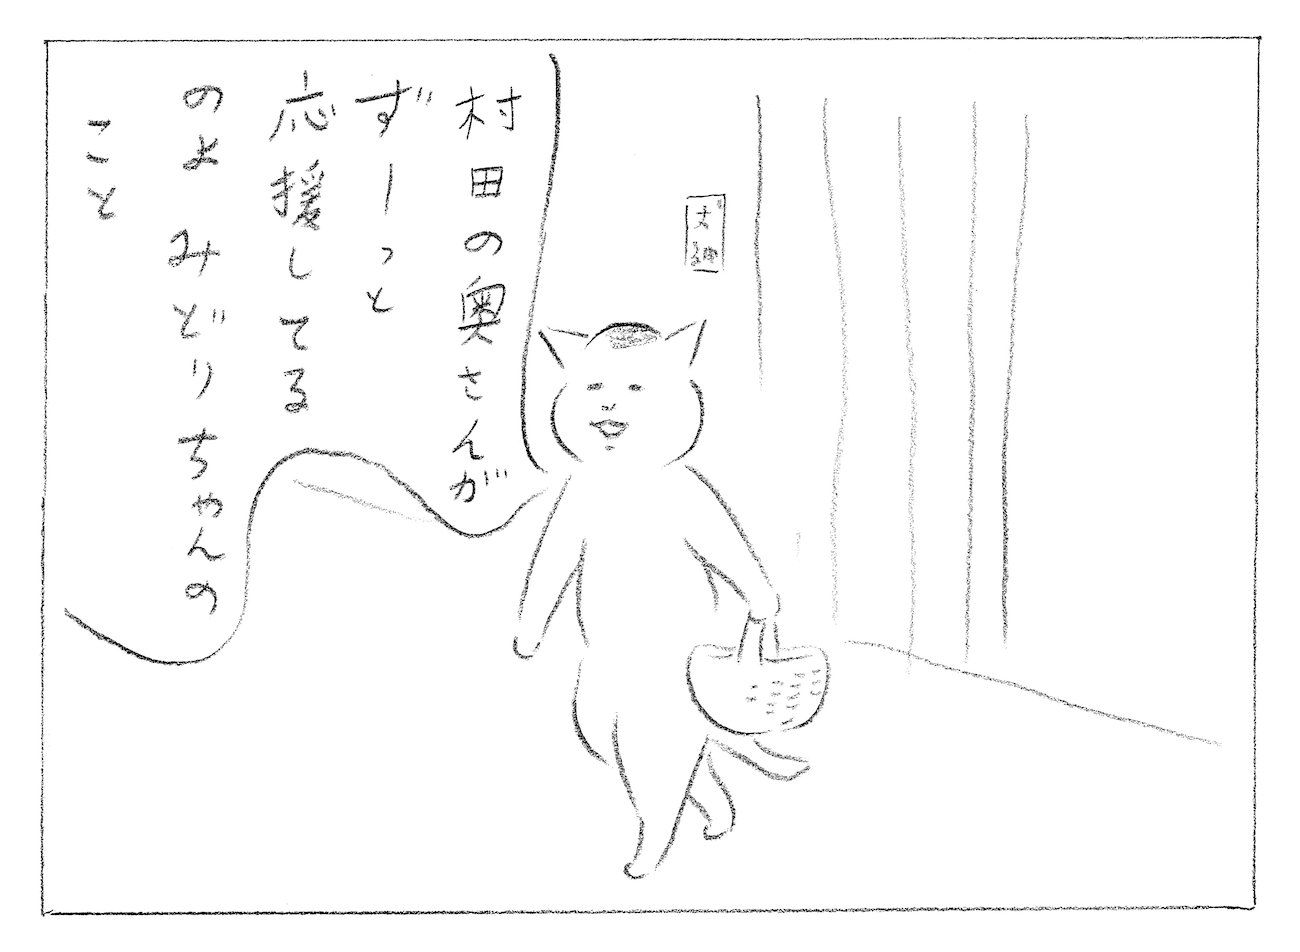 村田の奥さんが
ずーっと
応援してる
のよ みどりちゃんの
こと
女神